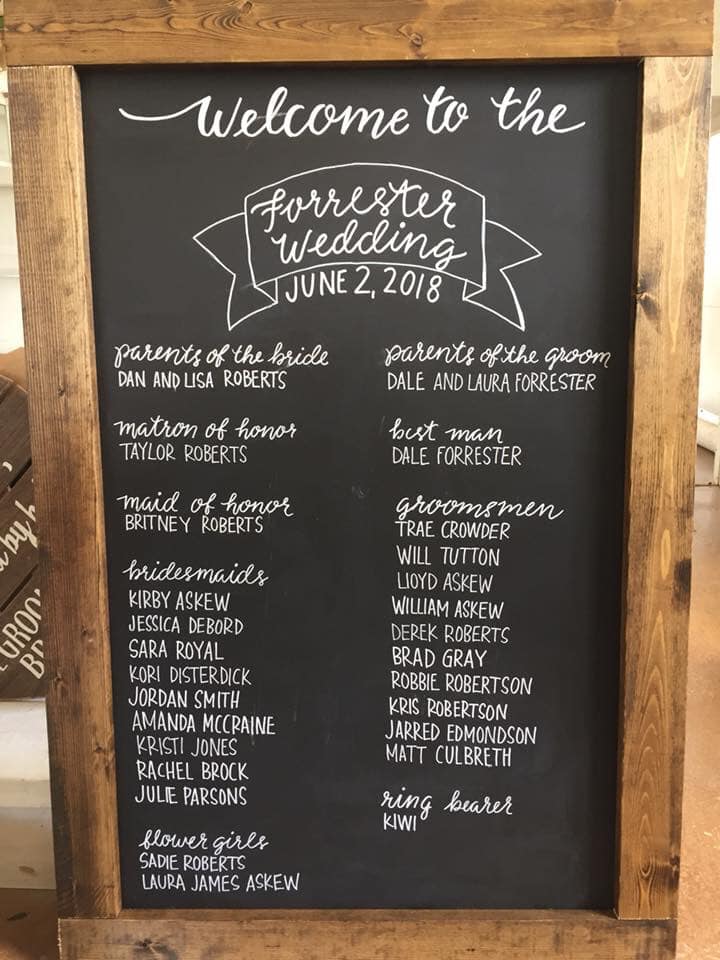 Welcome to the
Forrester
Wedding
JUNE 2, 2018
parents of the bride
DAN AND LISA ROBERTS
matron of honor
TAYLOR ROBERTS
maid of honor
BRITNEY ROBERTS
bridesmaids
KIRBY ASKEW
JESSICA DEBORD
SARA ROYAL
KORI DISTERDICK
JORDAN SMITH
AMANDA MCCRAINE
KRISTI JONES
RACHEL BROCK
JULIE PARSONS
flower girls
SADIE ROBERTS
LAURA JAMES ASKEW
parents of the groom
DALE AND LAURA FORRESTER
best man
DALE FORRESTER
groomsmen
TRAE CROWDER
WILL TUTTON
LLOYD ASKEW
WILLIAM ASKEW
DEREK ROBERTS
BRAD GRAY
ROBBIE ROBERTSON
KRIS ROBERTSON
JARRED EDMONDSON
MATT CULBRETH
ring bearer
KIWI